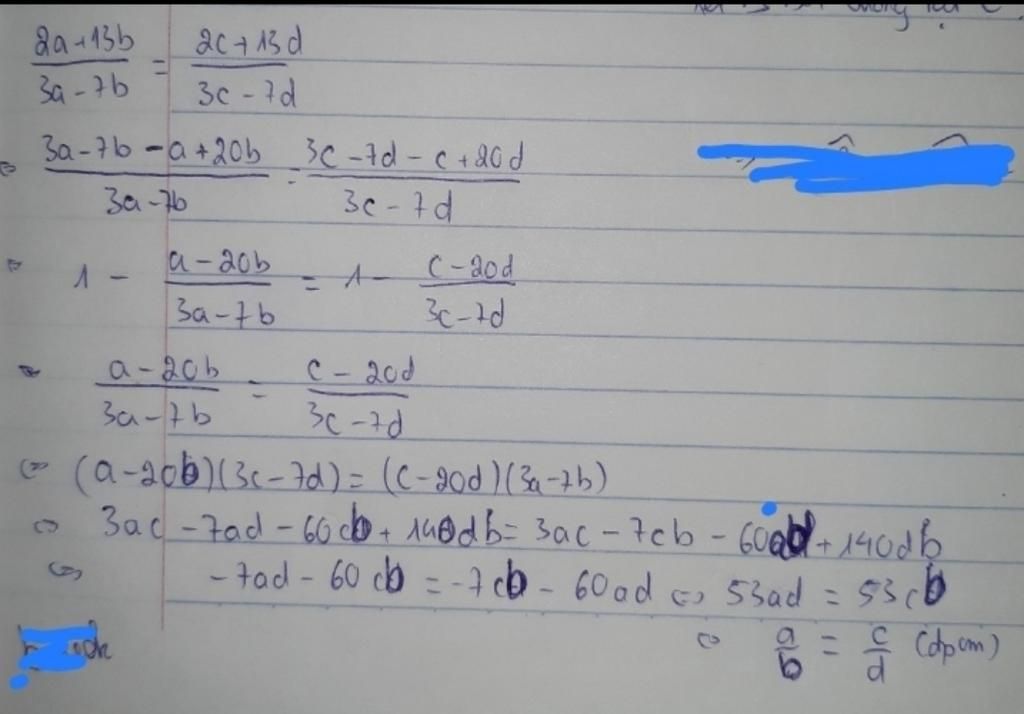 (2a+13b)/(3a-7b) = (2c+13d)/(3c-7d)
⇔ (3a-7b-a+20b)/(3a-7b) = (3c-7d-c+20d)/(3c-7d)
⇔ 1 - (a-20b)/(3a-7b) = 1 - (c-20d)/(3c-7d)
⇔ (a-20b)/(3a-7b) = (c-20d)/(3c-7d)
⇔ (a-20b)(3c-7d) = (c-20d)(3a-7b)
⇔ 3ac - 7ad - 60cb + 140db = 3ac - 7cb - 60ad + 140db
⇔ -7ad - 60cb = -7cb - 60ad ⇔ 53ad = 53cb
⇔ a/b = c/d (đpcm)